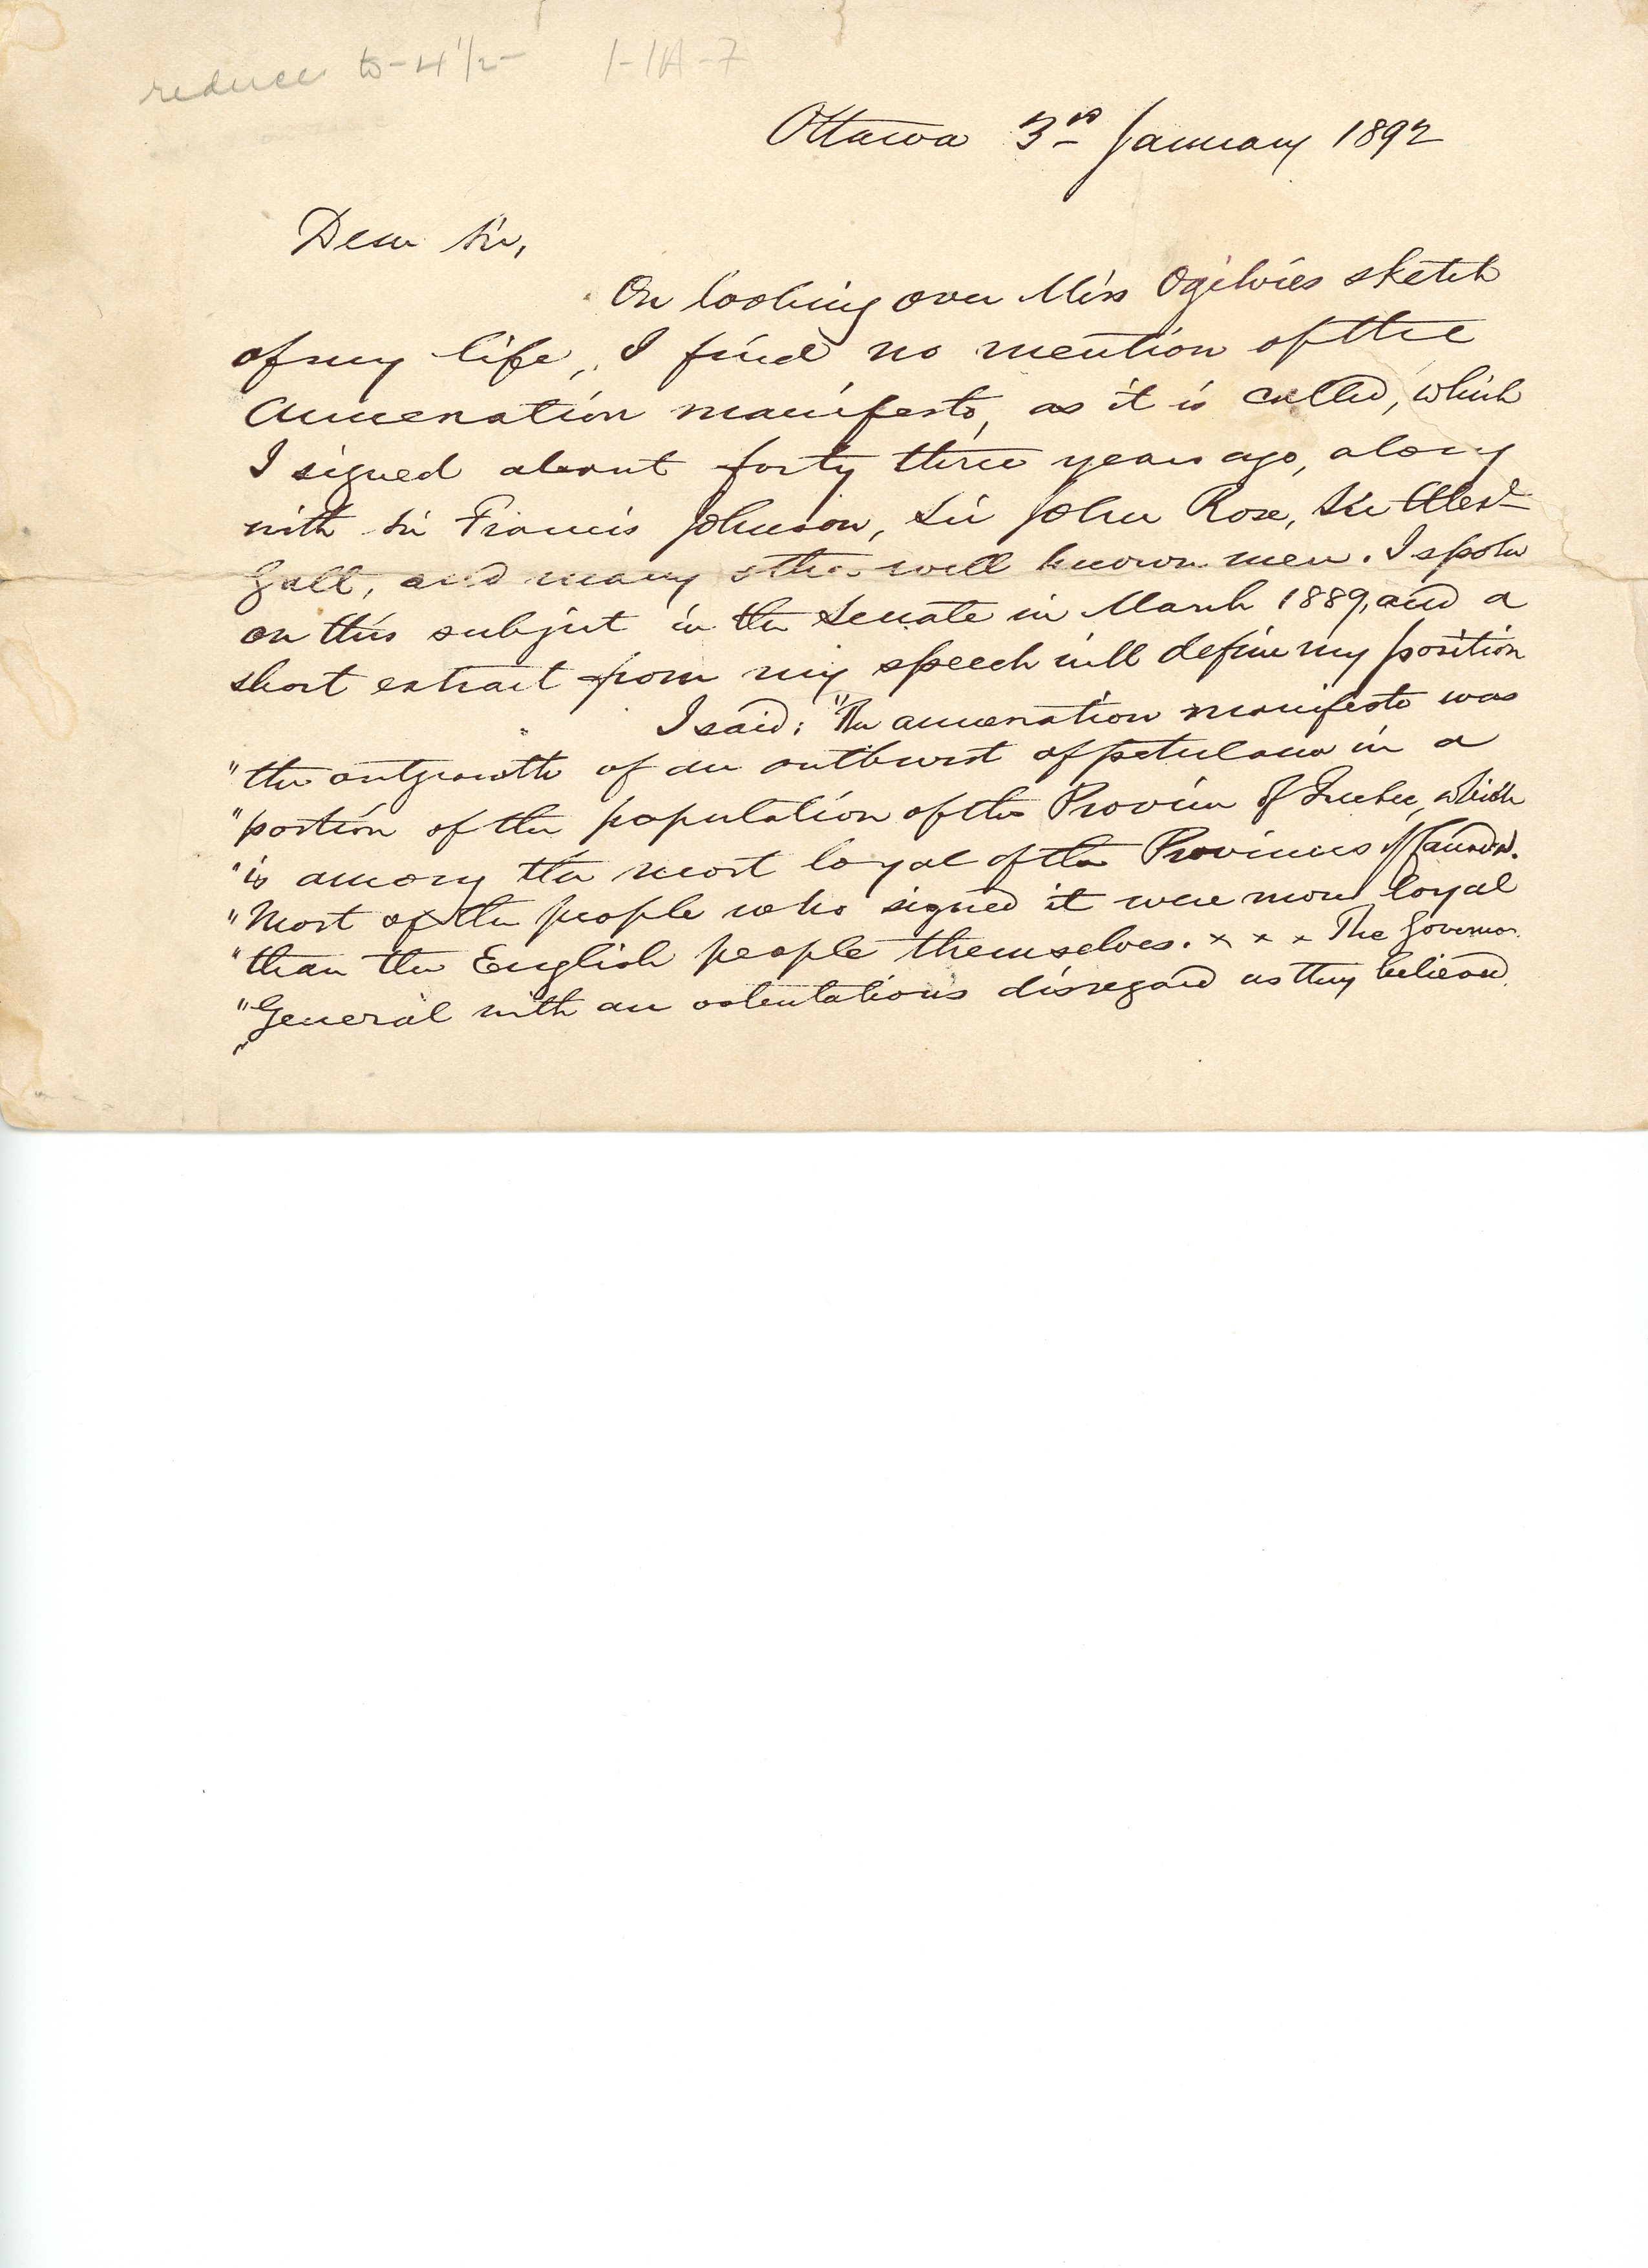 reduce to - 4 1/2 - 1-1A-7
Ottawa 3rd January 1892
Dear Sir,
On looking over Miss Ogilvies sketch
of my life, I find no mention of the
Annexation manifesto, as it is called, which
I signed about forty three years ago, along
with Sir Francis Johnson, Sir John Rose, Sir Alexr
Galt, and many other well known men. I spoke
on this subject in the Senate in March 1889, and a
short extract from my speech will define my position
I said: "The annexation manifesto was
"the outgrowth of an outburst of petulance in a
"portion of the population of the Province of Quebec, which
"is among the most loyal of the Provinces of Canada.
"Most of the people who signed it were more loyal
"than the English people themselves. x x x The Governor
"General with an ostentatious disregard as they believed
"